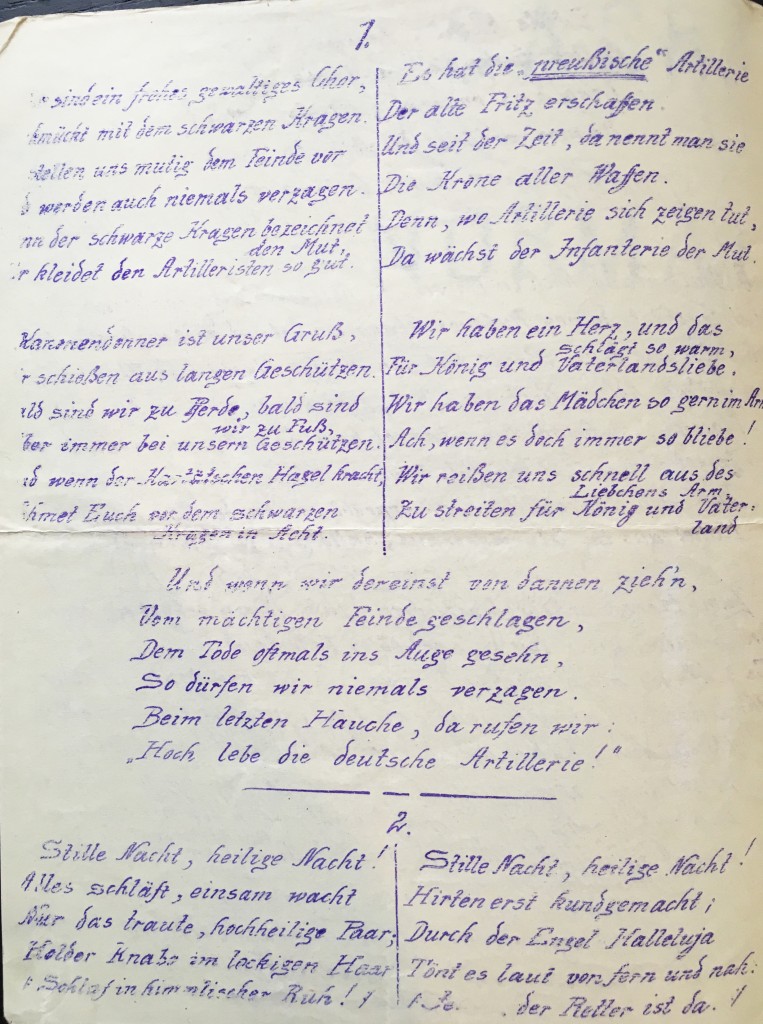 1.
sind ein frohes, gewaltiges Chor,
mückt mit dem schwarzen Kragen.
stellen uns mutig dem Feinde vor
werden auch niemals verzagen.
nn der schwarze Kragen bezeichnet
den Mut,
r kleidet den Artilleristen so gut.
Kanonendonner ist unser Gruß,
r schießen aus langen Geschützen.
ald sind wir zu Pferde, bald sind
wir zu Fuß,
ber immer bei unsern Geschützen.
d wenn der Kartätschen Hagel kracht,
hmet Euch vor dem schwarzen
Kragen in Acht.
Es hat die „preußische“ Artillerie
Der alte Fritz erschaffen.
Und seit der Zeit, da nennt man sie
Die Krone aller Waffen.
Denn, wo Artillerie sich zeigen tut,
Da wächst der Infanterie der Mut.
Wir haben ein Herz, und das
schlägt so warm,
Für König und Vaterlandsliebe.
Wir haben das Mädchen so gern im Arm
Ach, wenn es doch immer so bliebe!
Wir reißen uns schnell aus des
Liebchens Arm
Zu streiten für König und Vater=
land
Und wenn wir dereinst von dannen zieh'n,
Vom mächtigen Feinde geschlagen,
Dem Tode oftmals ins Auge gesehn,
So dürfen wir niemals verzagen.
Beim letzten Hauche, da rufen wir:
„Hoch lebe die deutsche Artillerie!“
2.
Stille Nacht, heilige Nacht!
Alles schläft, einsam wacht
Nur das traute, hochheilige Paar;
Holder Knabe im lockigen Haar
Schlaf in himmlischer Ruh!
Stille Nacht, heilige Nacht!
Hirten erst kundgemacht;
Durch der Engel Halleluja
Tönt es laut von fern und nah:
der Retter ist da.